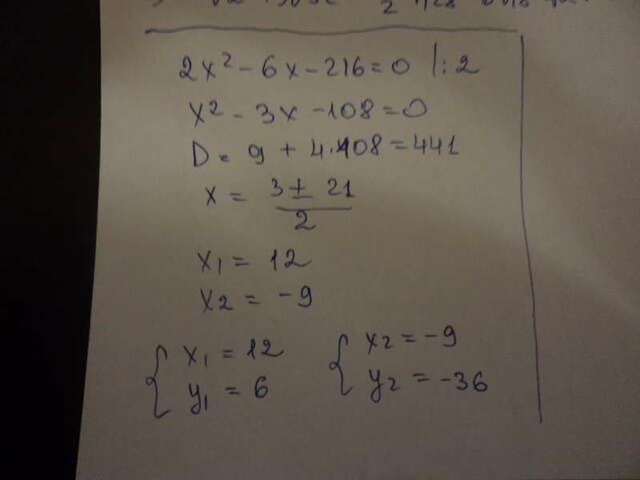 2x² - 6x - 216 = 0 |:2
x² - 3x - 108 = 0
D = 9 + 4·108 = 441
x = (3 ± 21)/2
x₁ = 12
x₂ = -9
{ x₁ = 12 { x₂ = -9
y₁ = 6 y₂ = -36